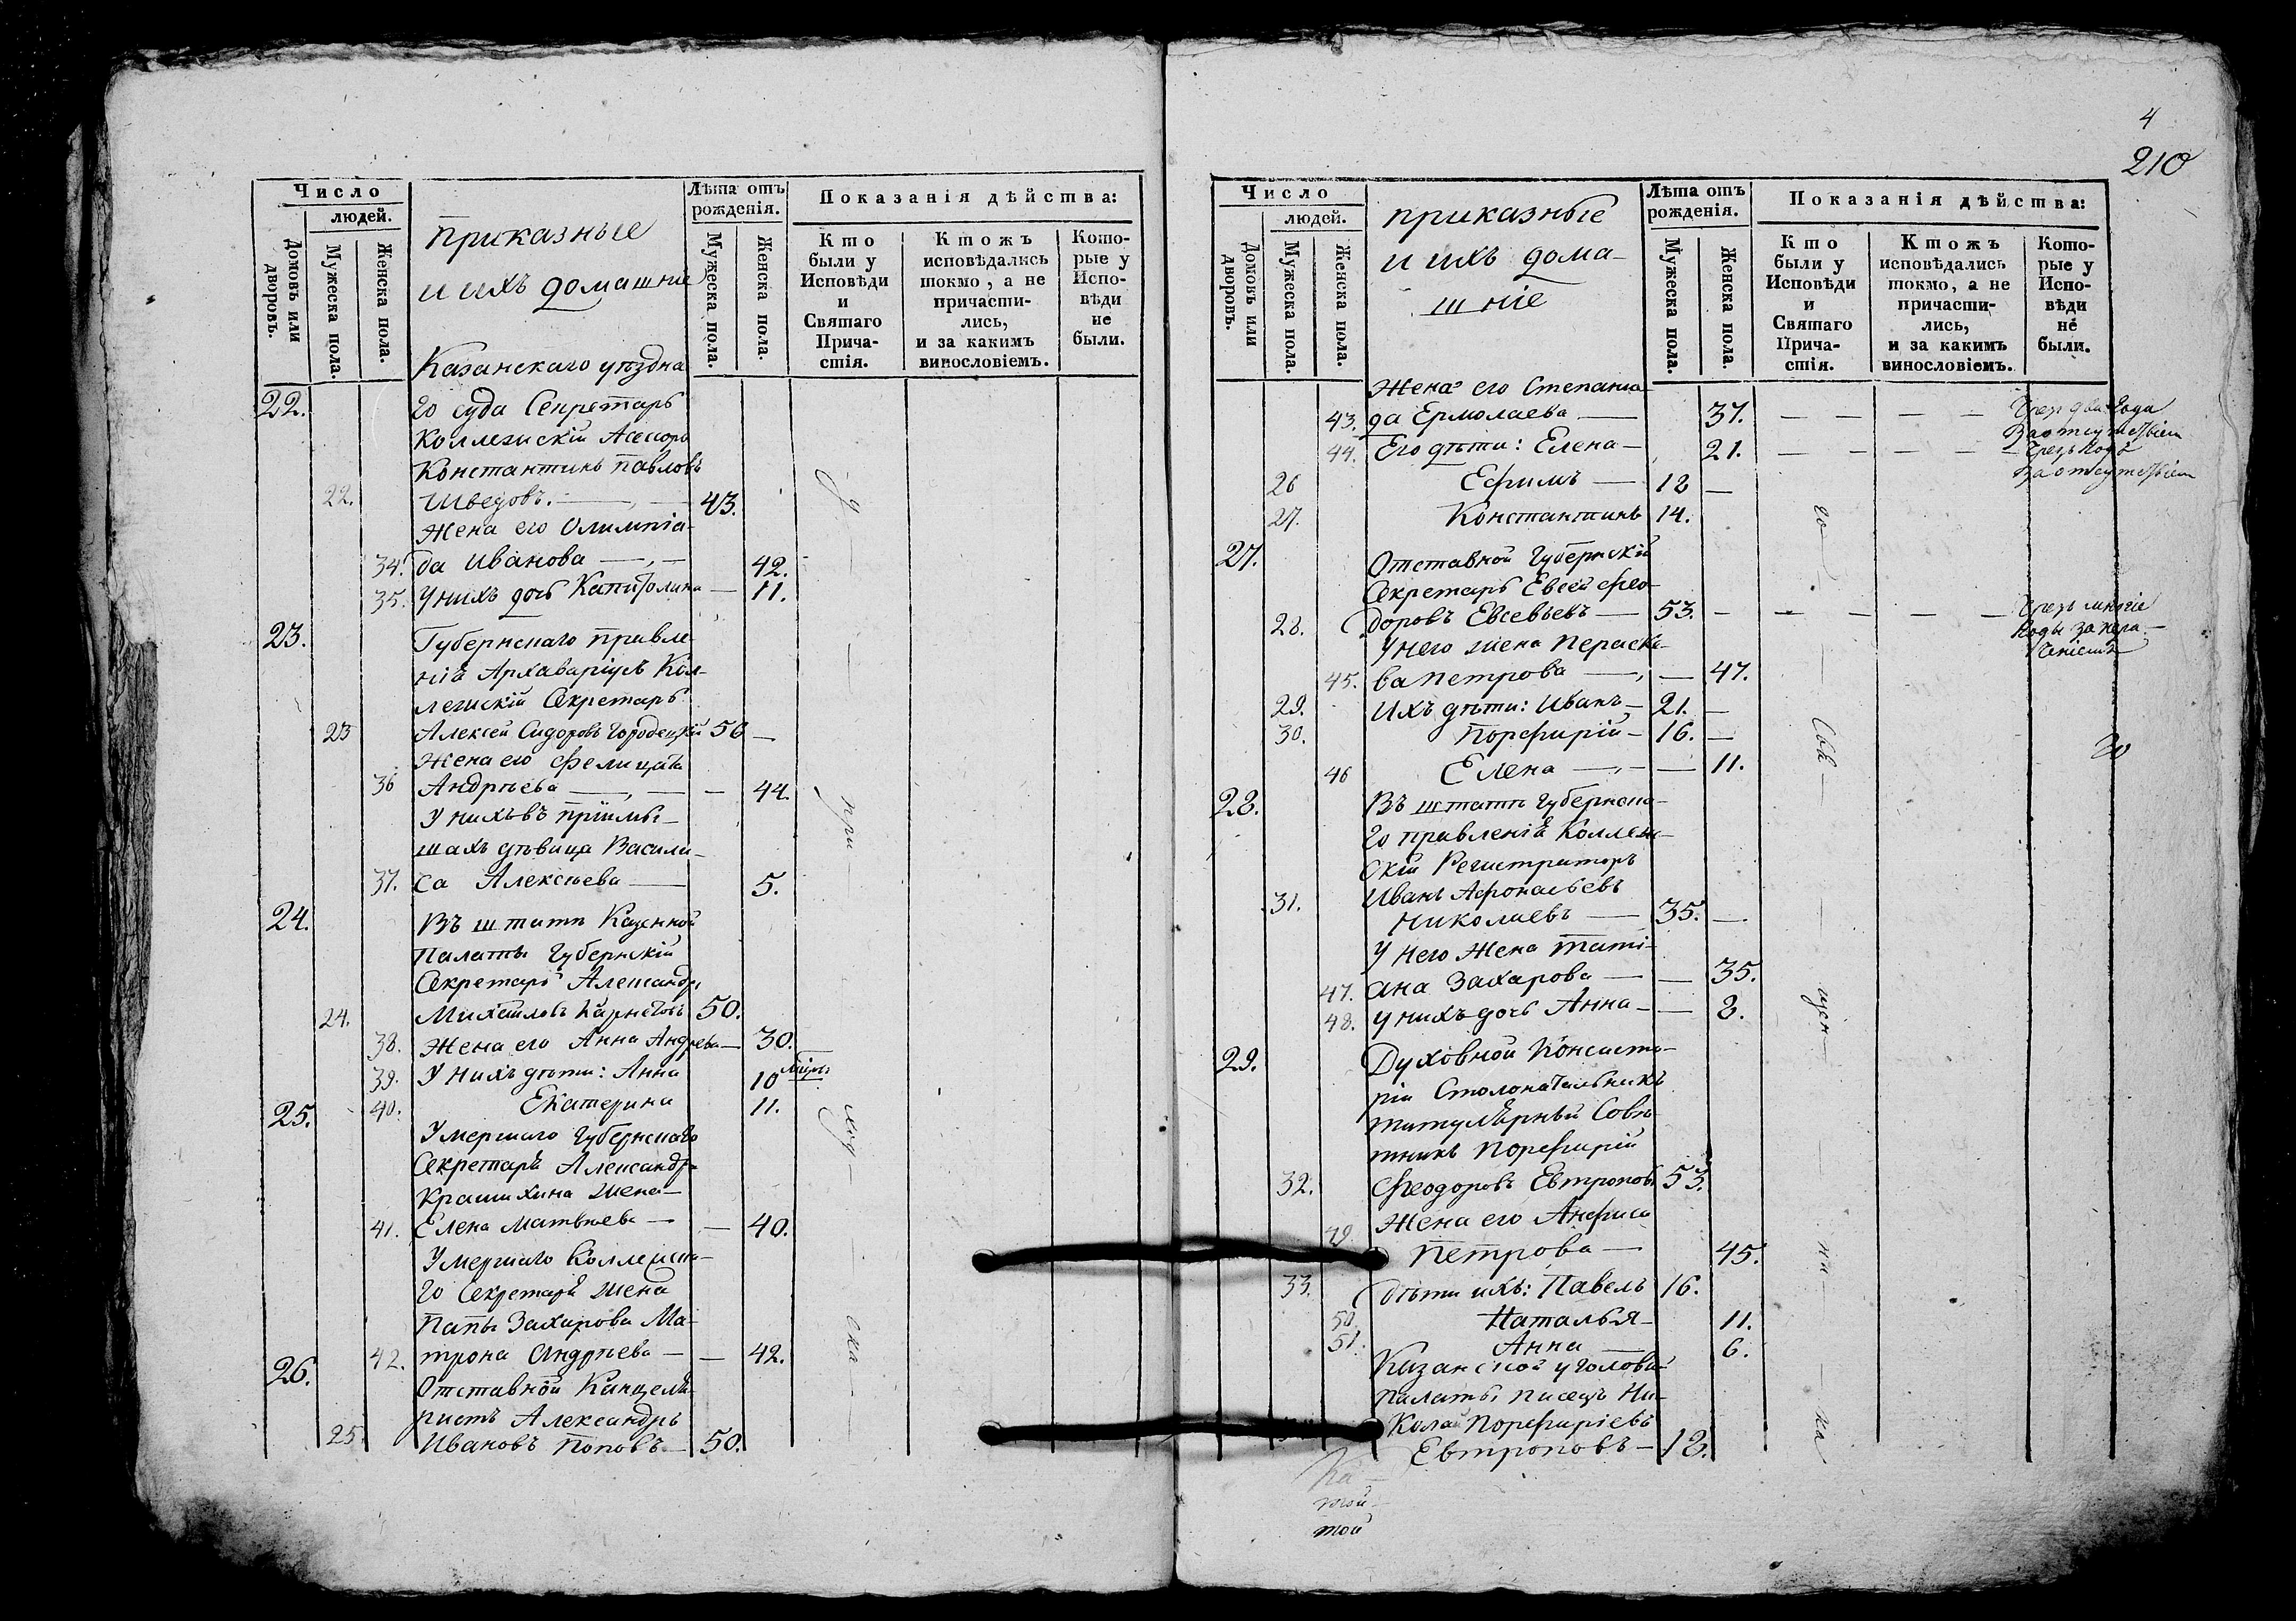 4
210
Число
людей.
Домовъ или дворовъ.
Мужеска пола.
Женска пола.
приказные
и ихъ домашніе
Лѣта отъ
рожденія.
Мужеска пола.
Женска пола.
Показанія дѣйства:
Кто
были у
Исповѣди
и
Святаго
Прича-
стія.
Ктожъ
исповѣдались
токмо, а не
причасти-
лись,
и за какимъ
винословіемъ.
Кото-
рые у
Испо-
вѣди
не
были.
Казанскаго уѣздна
22. го суда Секретарь
Коллежскій Асессоръ
Константинъ Павловъ
22. Шведовъ. — 43.
Жена его Олимпіа-
34. да Иванова — 42.
35. У нихъ дочь Капитолина — 11.
23. Губернскаго правле
нія Архиваріусъ Кол-
лежскій Секретарь
23 Алексей Сидоровъ Городецкій 56 —
Жена его Фелицата
36 Андрѣева — — 44.
У нихъ въ пріимы-
шахъ дѣвица Васили-
37. са Алексѣева — 5.
24. Въ штатѣ Казенной
Палаты Губернскій
Секретарь Александръ
24. Михайловъ 50.
38. Жена его Анна Андрева — 30.
39. У нихъ дѣти: Анна 10
25. 40. Екатерина 11.
Умершаго Губернскаго
Секретаря Александра
Крашихина жена —
41. Елена Матвѣева — — 40.
Умершаго Коллежска-
го Секретаря жена
Захарова Ма-
42. трона Андрѣева — — 42.
26. Отставной Канцеля-
ристъ Александръ
25 Ивановъ Поповъ — 50.
при
ход —
ска —
Число
людей.
Домовъ или дворовъ.
Мужеска пола.
Женска пола.
приказные
и ихъ дома-
шніе
Лѣта отъ
рожденія.
Мужеска пола.
Женска пола.
Показанія дѣйства:
Кто
были у
Исповѣди
и
Святаго
Прича-
стія.
Ктожъ
исповѣдались
токмо, а не
причасти-
лись,
и за какимъ
винословіемъ.
Кото-
рые у
Испо-
вѣди
не
были.
Жена его Степани-
43. да Ермолаева — 37. — — — — Чрез два года
За отсутствіем
44. Его дѣти: Елена — 21. — — — — — Чрезъ годъ
За отсутствіем
26 Ефимъ — 18 —
27. Константинъ 14.
го
27. Отставной Губернскій
Секретарь Евсей Фео-
28. доровъ Евсевьевъ — 53. — — — — Чрезъ многіе
годы за нера-
ченіемъ
У него жена Пераске-
45. ва Петрова — — 47.
29. Ихъ дѣти: Иванъ — 21. —
30. Порфирій — 16. —
46 Елена — — 11.
28. Въ штатѣ Губернска-
го правленія Коллеж-
скій Регистраторъ
31. Иванъ Афонасьевъ
Николаевъ — 35. —
У него Жена Тати-
47. ана Захарова — — 35.
48. У нихъ дочь Анна — — 8.
29. Духовной Консисто-
ріи Столоначальникъ
титулярный Совѣ
тникъ Порфирій
32. Феодоровъ Евтроповъ 53.
49 Жена его Анфиса
Петрова — 45.
33. Дѣти ихъ: Павелъ 16.
50 Наталья — 11.
51. Анна 6.
Казанской уголовной
палаты писецъ Ни-
колай Порфиріевъ
Евтроповъ — 18.
свя —
щен —
ни —
ка
той
той